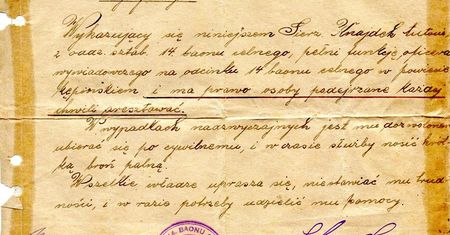 Wykazujący się niniejszem Sierż. Knajdek Antoni
z oddz. sztab. 14 baonu celnego, pełni funkcję oficera
wywiadowczego na odcinku 14 baonu celnego w powiecie
Kępińskiem i ma prawo osoby podejrzane każdej
chwili aresztować.
W wypadkach nadzwyczajnych jest mu dozwolonem
ubierać się po cywilnemu, i w czasie służby nosić krót-
ką broń palną.
Wszelkie władze uprasza się, niestawiać mu trud-
ności, i w razie potrzeby udzielić mu pomocy.
BAONU